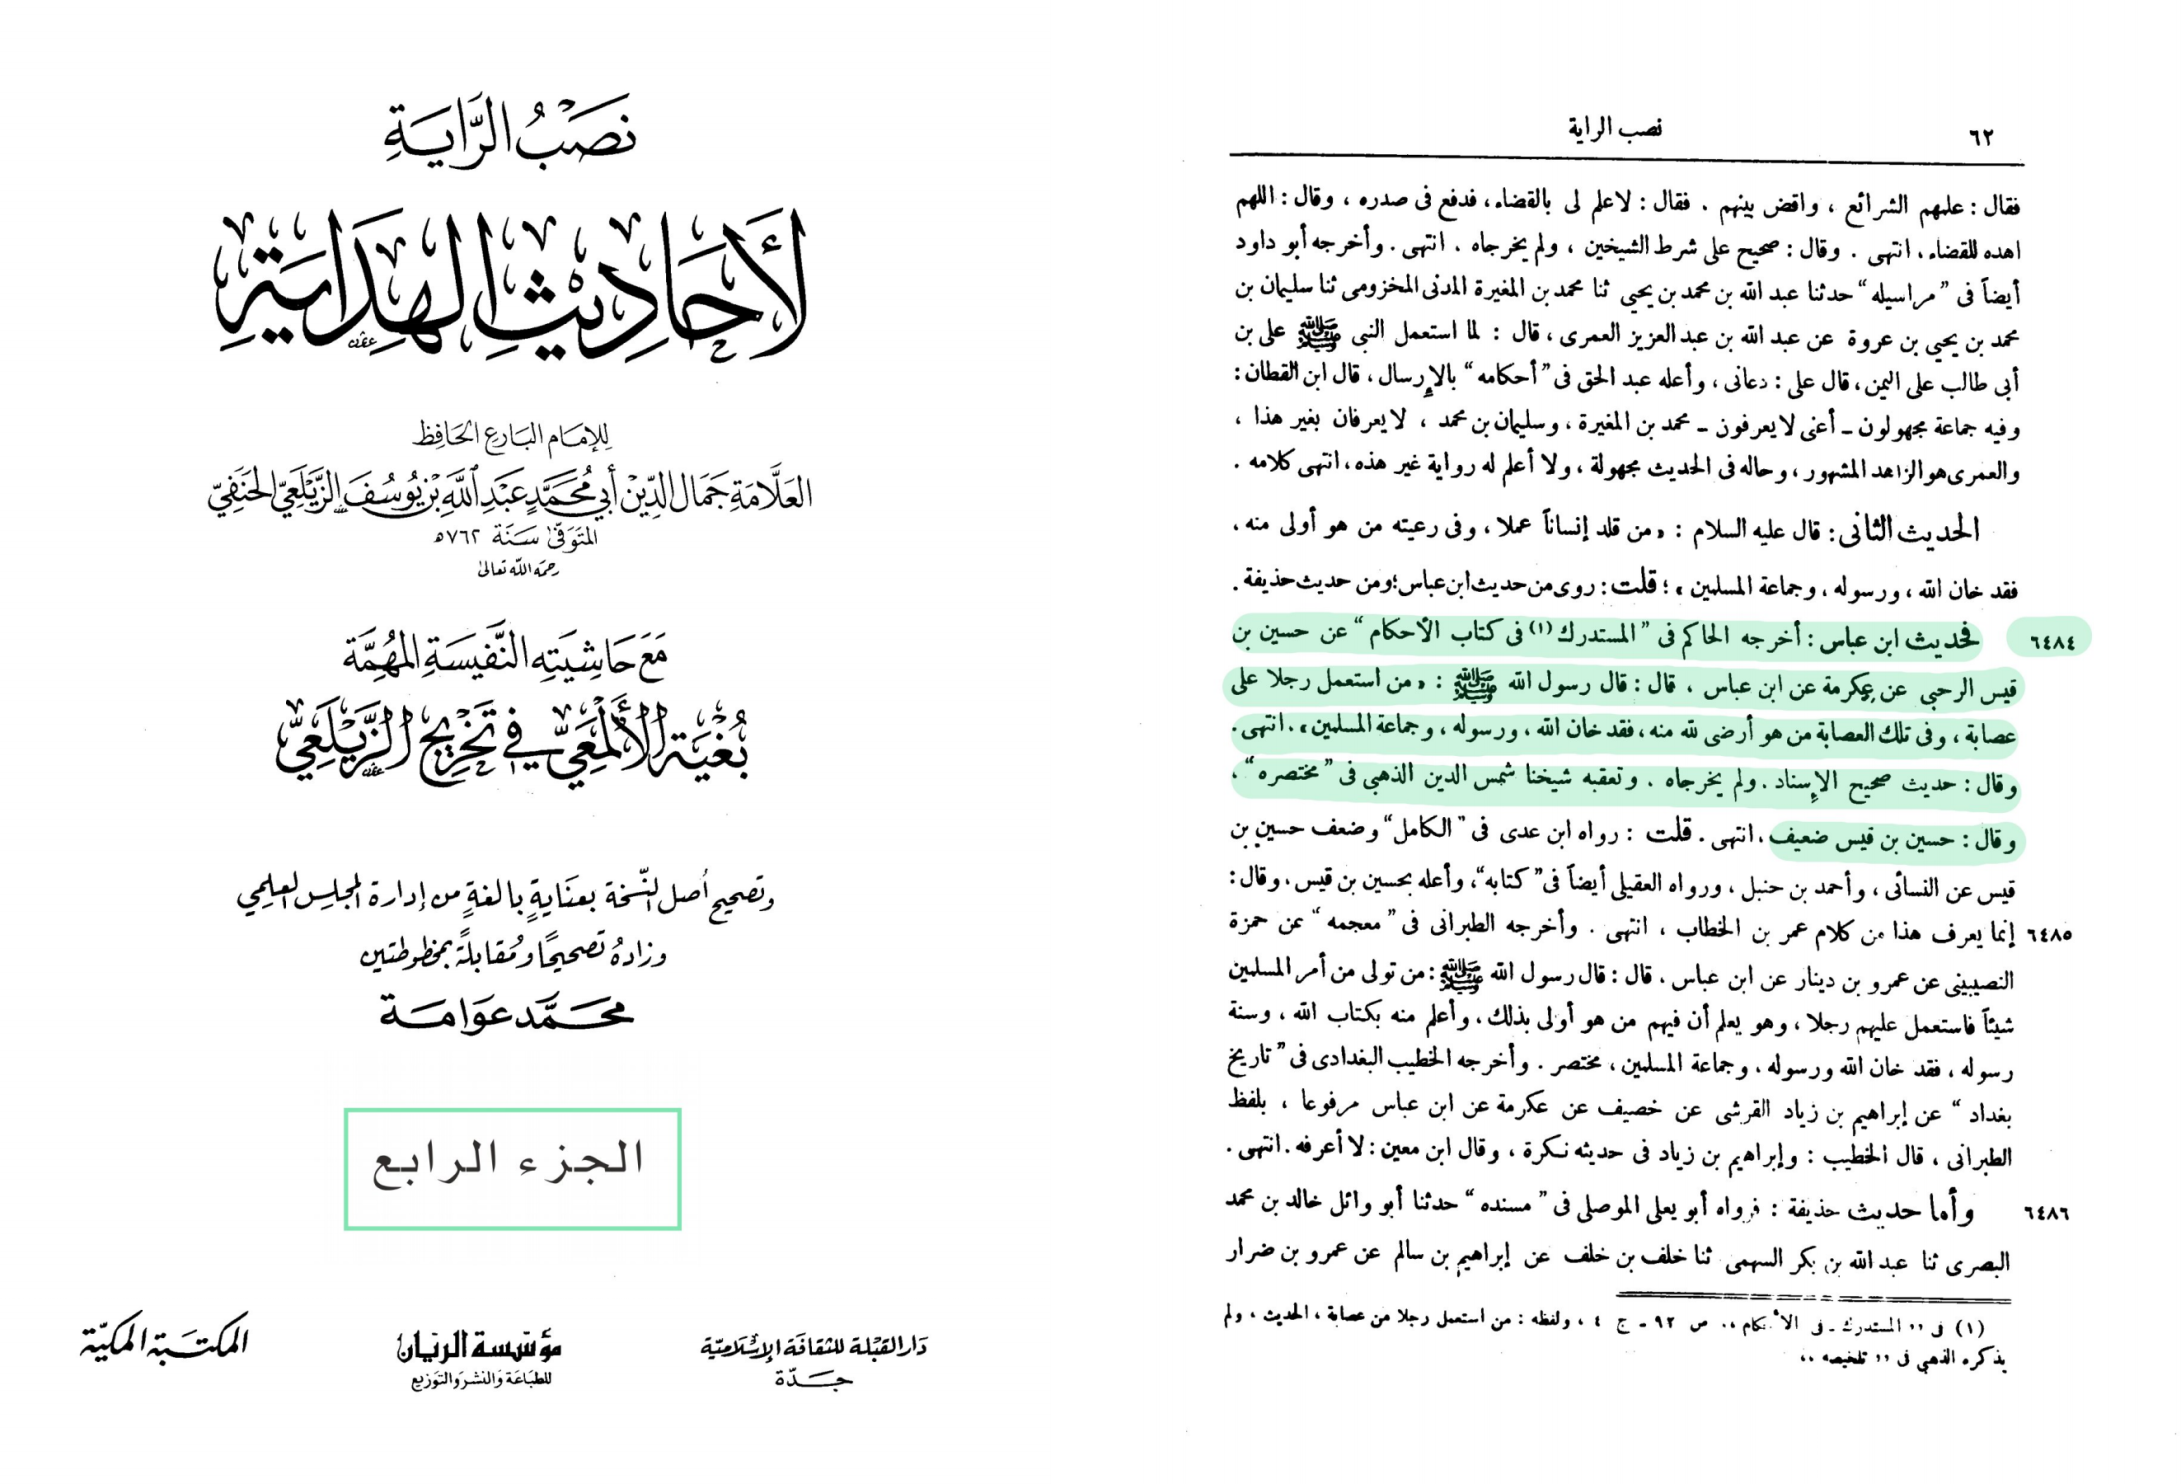 نصب الراية
لأحاديث الهداية
للإمام البارع الحافظ
العلامة جمال الدين أبي محمد عبد الله بن يوسف الزيلعي الحنفي
المتوفى سنة ٧٦٢ه
رحمه الله تعالى
مع حاشيته النفيسة المهمة
بغية الألمعي في تخريج الزيلعي
وتصحيح أصل النسخة بعناية بالغة من إدارة المجلس العلمي
وزاده تصحيحا ومقابلة بمخطوطتين
محمد عوامة
الجزء الرابع
دار القبلة للثقافة الإسلامية
جدة
مؤسسة الريان
للطباعة والنشر والتوزيع
المكتبة المكية
٦٢ نصب الراية
فقال : علمهم الشرائع ، واقض بينهم . فقال : لاعلم لى بالقضاء، فدفع فى صدره ، وقال : اللهم
اهده للقضاء، انتهى . وقال : صحيح على شرط الشيخين ، ولم يخرجاه . انتهى . وأخرجه أبو داود
أيضاً فى " مراسيله " حدثنا عبد الله بن محمد بن يحيي ثنا محمد بن المغيرة المدنى المخزومى ثنا سليمان بن
محمد بن يحيي بن عروة عن عبد الله بن عبد العزيز العمرى ، قال : لما استعمل النبى ﷺ على بن
أبى طالب على اليمن، قال على : دعانى ، وأعله عبد الحق فى " أحكامه " بالإرسال ، قال ابن القطان :
وفيه جماعة مجهولون ـ أعنى لا يعرفون ـ محمد بن المغيرة ، وسليمان بن محمد ، لا يعرفان بغير هذا ،
والعمرى هو الزاهد المشهور ، وحاله فى الحديث مجهولة ، ولا أعلم له رواية غير هذه، انتهى كلامه .
الحديث الثانى : قال عليه السلام : « من قلد إنساناً عملا ، وفى رعيته من هو أولى منه ،
فقد خان الله ، ورسوله ، وجماعة المسلمين » ؛ قلت : روى من حديث ابن عباس؛ ومن حديث حذيفة .
٦٤٨٤ فحديث ابن عباس : أخرجه الحاكم فى " المستدرك (١) فى كتاب الأحكام " عن حسين بن
قيس الرحبى عن عكرمة عن ابن عباس ، قال : قال رسول الله ﷺ : « من استعمل رجلا على
عصابة ، وفى تلك العصابة من هو أرضى لله منه ، فقد خان الله ، ورسوله ، وجماعة المسلمين » . انتهى .
وقال : حديث صحيح الإسناد . ولم يخرجاه . وتعقبه شيخنا شمس الدين الذهبى فى " مختصره " ،
وقال : حسين بن قيس ضعيف ، انتهى . قلت : رواه ابن عدى فى " الكامل " وضعف حسين بن
قيس عن النسائى ، وأحمد بن حنبل ، ورواه العقيلى أيضاً فى " كتابه "، وأعله بحسين بن قيس ، وقال :
٦٤٨٥ إنما يعرف هذا من كلام عمر بن الخطاب ، انتهى . وأخرجه الطبرانى فى " معجمه " عن حمزة
النصيبينى عن عمرو بن دينار عن ابن عباس ، قال : قال رسول الله ﷺ : من تولى من أمر المسلمين
شيئاً فاستعمل عليهم رجلا ، وهو يعلم أن فيهم من هو أولى بذلك ، وأعلم منه بكتاب الله ، وسنة
رسوله ، فقد خان الله ورسوله ، وجماعة المسلمين ، مختصر . وأخرجه الخطيب البغدادى فى " تاريخ
بغداد " عن إبراهيم بن زياد القرشى عن خصيف عن عكرمة عن ابن عباس مرفوعا ، بلفظ
الطبرانى ، قال الخطيب : وإبراهيم بن زياد فى حديثه نكرة ، وقال ابن معين : لا أعرفه . انتهى .
٦٤٨٦ وأما حديث حذيفة : فرواه أبو يعلى الموصلى فى " مسنده " حدثنا أبو وائل خالد بن محمد
البصرى ثنا عبد الله بن بكر السهمى ثنا خلف بن خلف عن إبراهيم بن سالم عن عمرو بن ضرار
(١) فى ,, المستدرك ـ فى الأحكام ,, ص ٩٢ ـ ج ٤ ، ولفظه : من استعمل رجلا من عصابة ، الحديث ، ولم
يذكره الذهبي فى ,, تلخيصه ,,